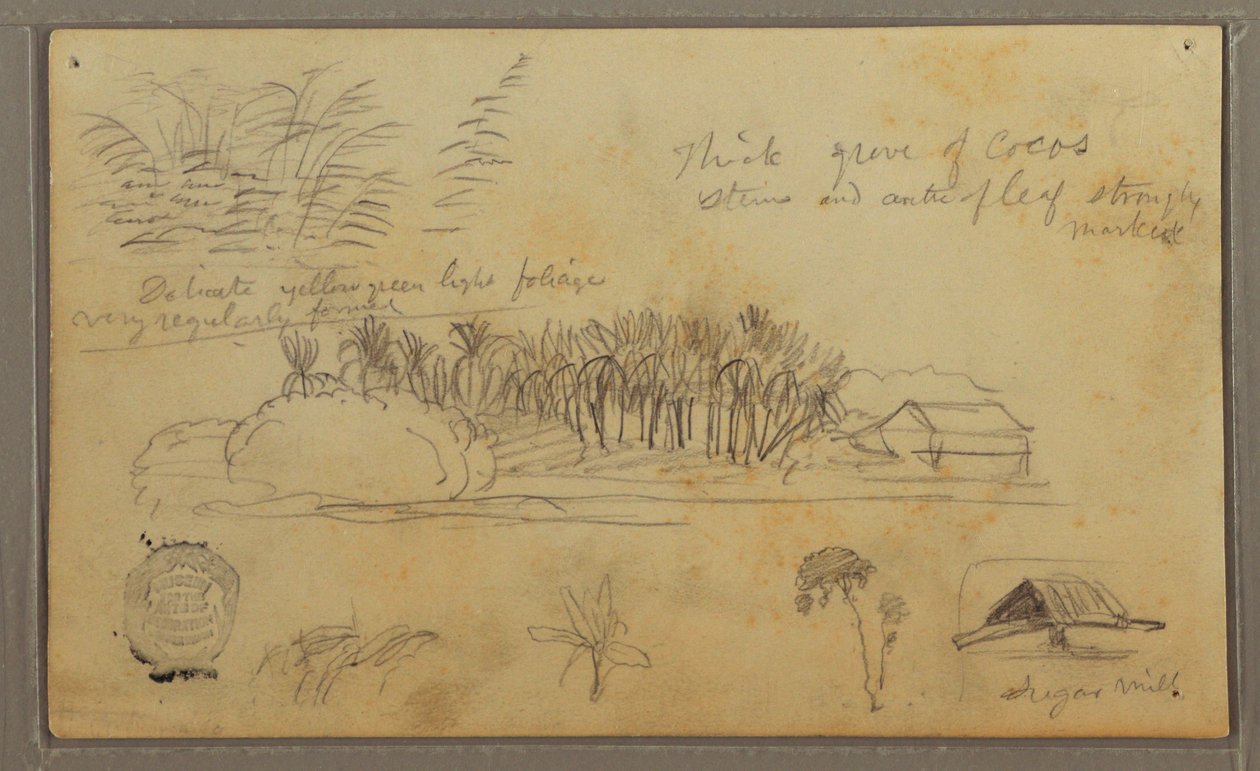 Thick grove of Cocos
stems and of leaf strongly
marked
Delicate yellow green light foliage
very regularly formed
MUSEUM
FOR THE
ARTS OF
DECORATION
Sugar Mill